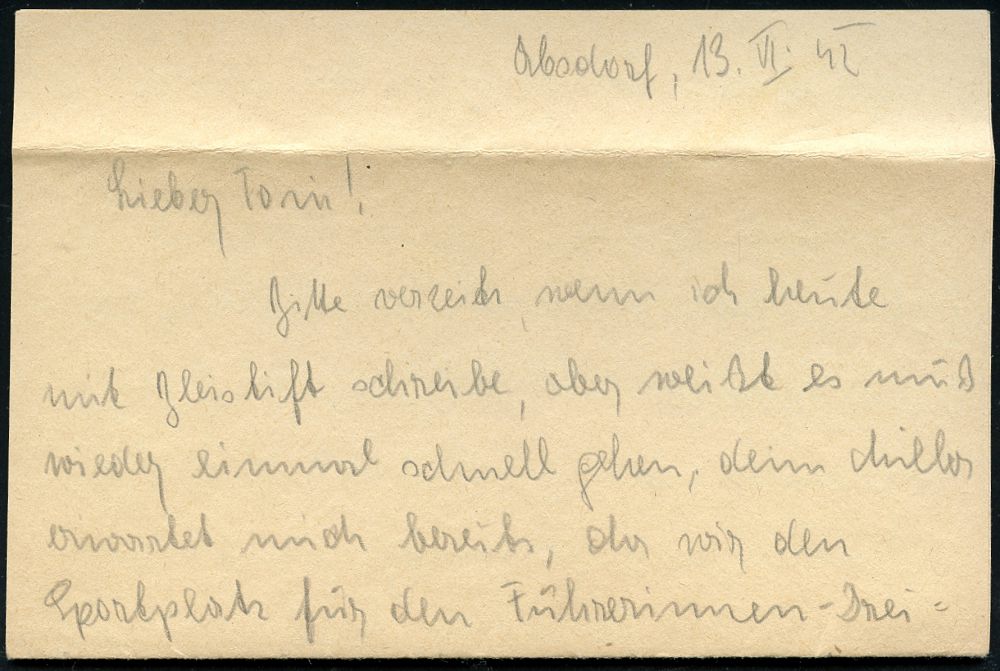 Absdorf, 13. VI. 42
Lieber Toni!
Bitte verzeih, wenn ich heute
mit Bleistift schreibe, aber weißt es muß
wieder einmal schnell gehen, denn
erwartet mich bereits, da wir den
Sportplatz für den Führerinnen-Drei-